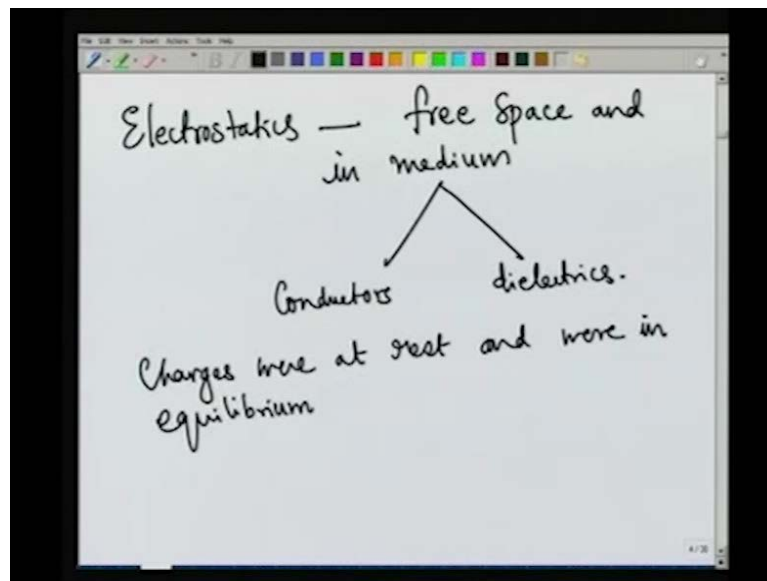 File Edit View Insert Actions Tools Help
Electrostatics — free Space and
in medium
Conductors
dielectrics.
Charges were at rest and were in
equilibrium